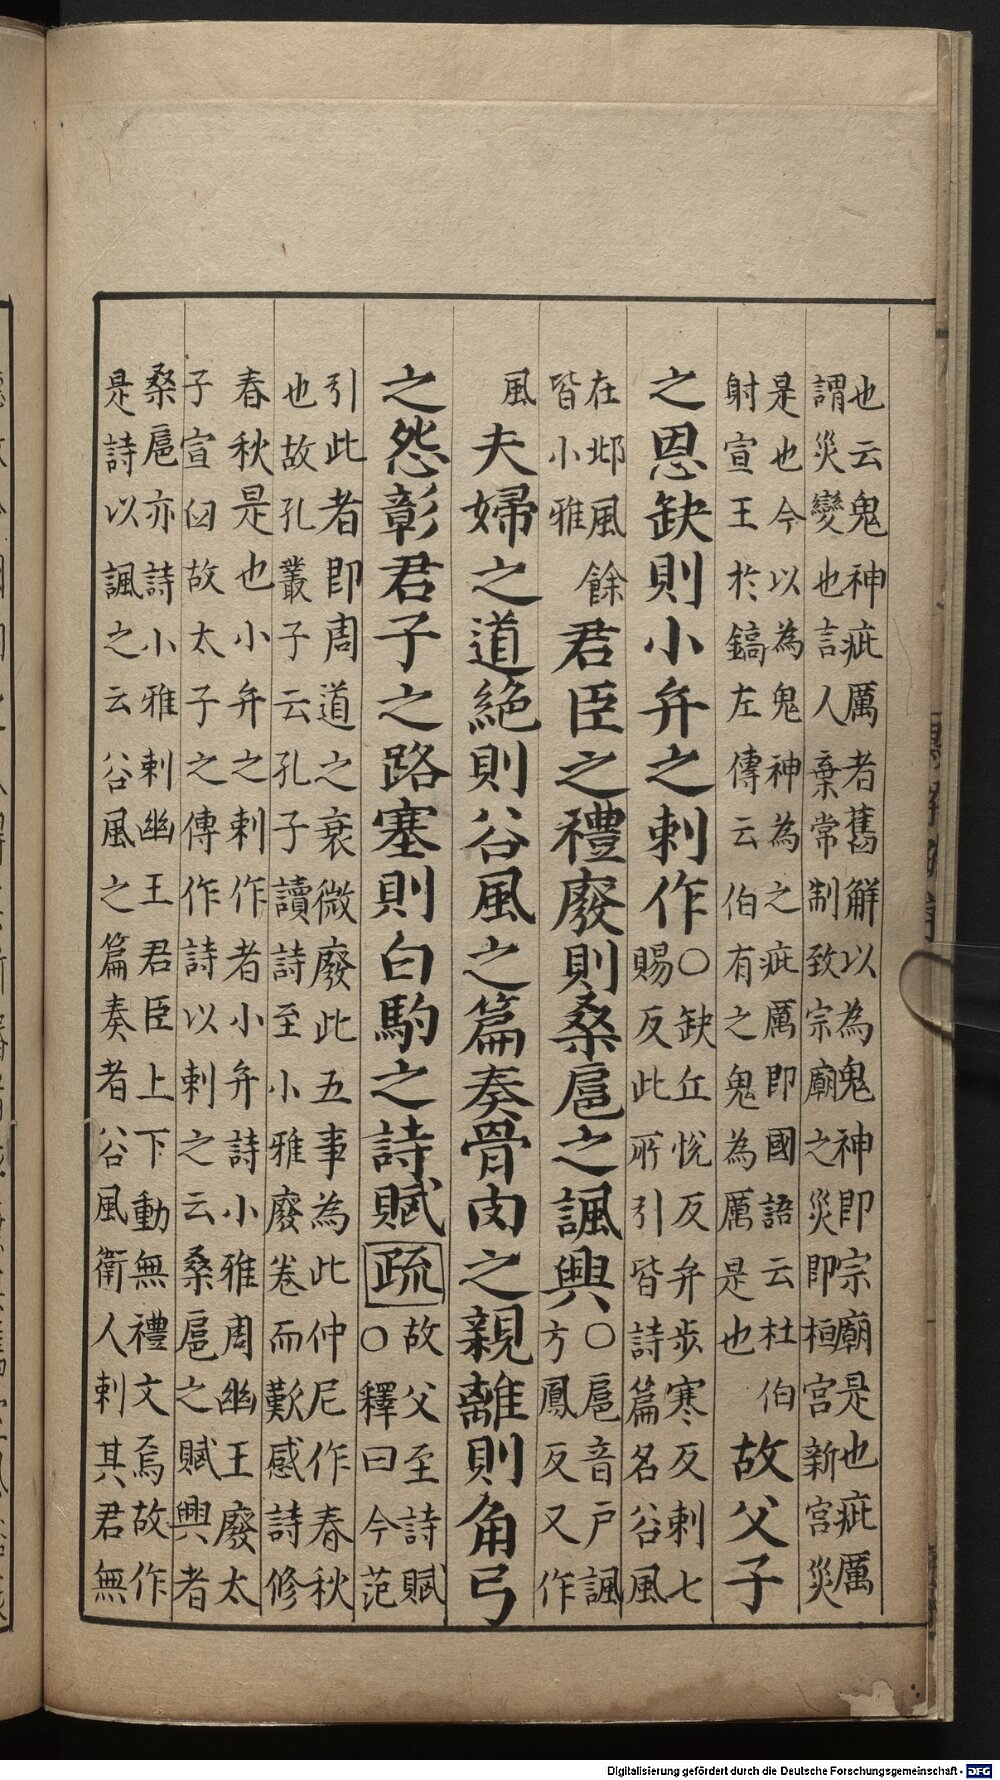 也云鬼神疵厲者舊解以為鬼神即宗廟是也疵厲
謂災變也言人棄常制致宗廟之災即桓宮新宮災
是也今以為鬼神為之疵厲即國語云杜伯
射宣王於鎬左傳云伯有之鬼為厲是也
故父子
之恩缺則小弁之刺作
○缺丘悅反弁步寒反刺七
賜反此所引皆詩篇名谷風
在邶風餘
皆小雅
君臣之禮廢則桑扈之諷興
○扈音戶諷
方鳳反又作
風
夫婦之道絕則谷風之篇奏骨肉之親離則角弓
之怨彰君子之路塞則白駒之詩賦
疏
故父至詩賦
○釋曰今范
引此者即周道之衰微廢此五事為此仲尼作春秋
也故孔叢子云孔子讀詩至小雅廢卷而歎感詩修
春秋是也小弁之刺作者小弁詩小雅周幽王廢太
子宣臼故太子之傳作詩以刺之云桑扈之賦興者
桑扈亦詩小雅刺幽王君臣上下動無禮文焉故作
是詩以諷之云谷風之篇奏者谷風衛人刺其君無
Digitalisierung gefördert durch die Deutsche Forschungsgemeinschaft - DFG